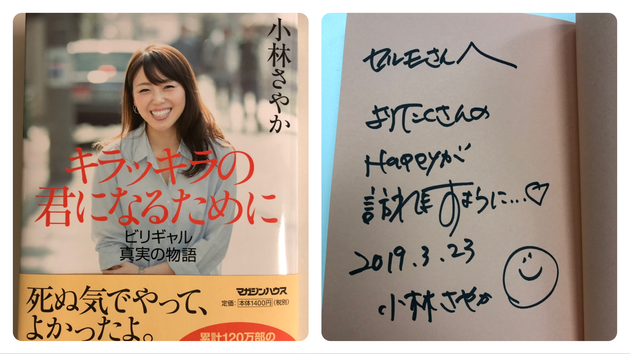 小林さやか
キラッキラの
君になるために
ビリギャル
真実の物語
死ぬ気でやって、
よかったよ。
マガジンハウス
定価:本体1400円(税別)
累計120万部の
セルモさんへ
よりたくさんの
Happyが
訪れますように…♡
2019.3.23
小林さやか